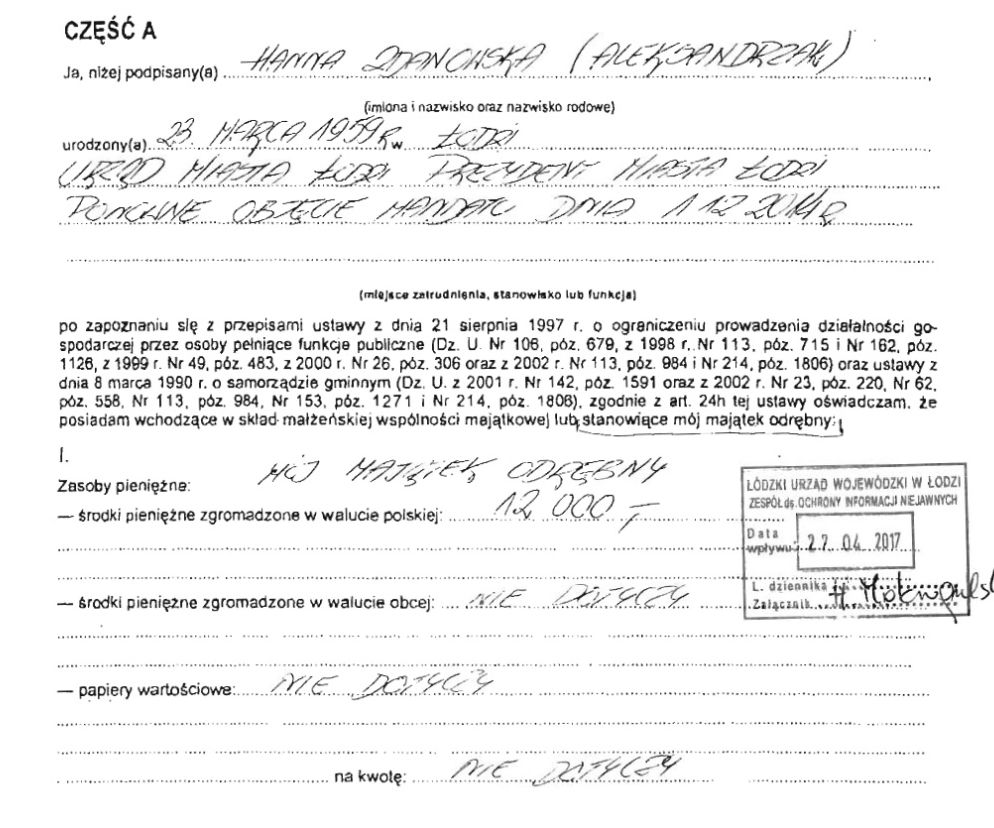 CZĘŚĆ A
Ja, niżej podpisany(a) HANNA ZDANOWSKA (ALEKSANDRZAK)
(imiona i nazwisko oraz nazwisko rodowe)
urodzony(a) 23 MARCA 1959 R w ŁODZI
URZĄD MIASTA ŁODZI PREZYDENT MIASTA ŁODZI
PONOWNE OBJĘCIE MANDATU DNIA 1 12 2014 R
(miejsce zatrudnienia, stanowisko lub funkcja)
po zapoznaniu się z przepisami ustawy z dnia 21 sierpnia 1997 r. o ograniczeniu prowadzenia działalności go-
spodarczej przez osoby pełniące funkcje publiczne (Dz. U. Nr 106, póz. 679, z 1998 r. Nr 113, póz. 715 i Nr 162, póz.
1126, z 1999 r. Nr 49, póz. 483, z 2000 r. Nr 26, póz. 306 oraz z 2002 r. Nr 113, póz. 984 i Nr 214, póz. 1806) oraz ustawy z
dnia 8 marca 1990 r. o samorządzie gminnym (Dz. U. z 2001 r. Nr 142, póz. 1591 oraz z 2002 r. Nr 23, póz. 220, Nr 62,
póz. 558, Nr 113, póz. 984, Nr 153, póz. 1271 i Nr 214, póz. 1806), zgodnie z art. 24h tej ustawy oświadczam, że
posiadam wchodzące w skład małżeńskiej wspólności majątkowej lub stanowiące mój majątek odrębny:
I.
Zasoby pieniężne: MÓJ MAJĄTEK ODRĘBNY
— środki pieniężne zgromadzone w walucie polskiej: 12 000,-
ŁÓDZKI URZĄD WOJEWÓDZKI W ŁODZI
ZESPÓŁ ds. OCHRONY INFORMACJI NIEJAWNYCH
Data
wpływu: 27. 04. 2017
L. dziennika
Załącznik
— środki pieniężne zgromadzone w walucie obcej: NIE DOTYCZY
— papiery wartościowe: NIE DOTYCZY
na kwotę: NIE DOTYCZY